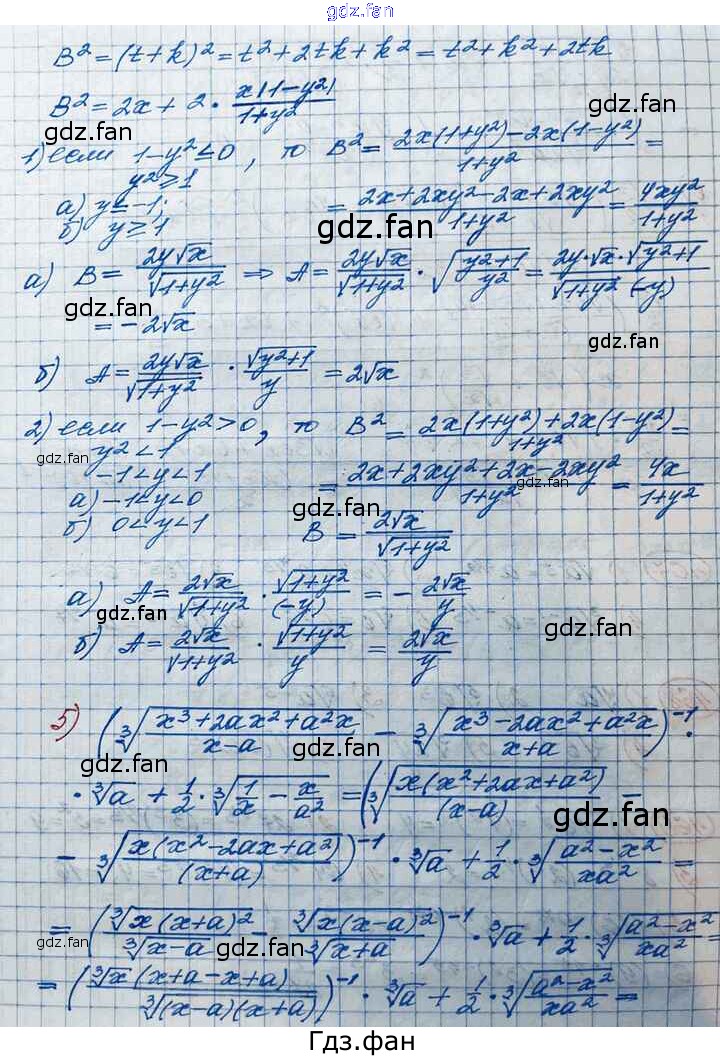 gdz.fan
B² = (t+k)² = t² + 2tk + k² = t² + k² + 2tk
B² = 2x + 2 · x|1-y²|/(1+y²)
gdz.fan
gdz.fan
1) если 1-y² ≤ 0, то B² = (2x(1+y²) - 2x(1-y²))/(1+y²) =
y² ≥ 1
а) y ≤ -1; = (2x+2xy²-2x+2xy²)/(1+y²) = 4xy²/(1+y²)
б) y ≥ 1
gdz.fan
gdz.fan
а) B = 2y√x/√(1+y²) ⇒ A = 2y√x/√(1+y²) · √((y²+1)/y²) = (2y·√x·√(y²+1))/(√(1+y²)(-y))
gdz.fan
gdz.fan
= -2√x
б) A = 2y√x/√(1+y²) · √(y²+1)/y = 2√x
gdz.fan
gdz.fan
2) если 1-y² > 0, то B² = (2x(1+y²)+2x(1-y²))/(1+y²) =
y² < 1
gdz.fan
-1 < y < 1 = (2x+2xy²+2x-2xy²)/(1+y²) = 4x/(1+y²)
gdz.fan
gdz.fan
а) -1 < y < 0
б) 0 < y < 1 B = 2√x/√(1+y²)
gdz.fan
а) A = 2√x/√(1+y²) · √(1+y²)/(-y) = - 2√x/y
gdz.fan
gdz.fan
б) A = 2√x/√(1+y²) · √(1+y²)/y = 2√x/y
5) (∛((x³+2ax²+a²x)/(x-a)) - ∛((x³-2ax²+a²x)/(x+a)))⁻¹ ·
gdz.fan
gdz.fan
· ∛a + 1/2 · ∛(1/x - x/a²) = (∛(x(x²+2ax+a²)/(x-a)) -
gdz.fan
- ∛(x(x²-2ax+a²)/(x+a)))⁻¹ · ∛a + 1/2 · ∛((a²-x²)/(xa²)) =
gdz.fan
gdz.fan
= (∛(x(x+a)²)/∛(x-a) - ∛(x(x-a)²)/∛(x+a))⁻¹ · ∛a + 1/2 · ∛((a²-x²)/(xa²)) =
gdz.fan
gdz.fan
= (∛x(x+a-x+a)/∛((x-a)(x+a)))⁻¹ · ∛a + 1/2 · ∛((a²-x²)/(xa²)) =
Гдз.фан